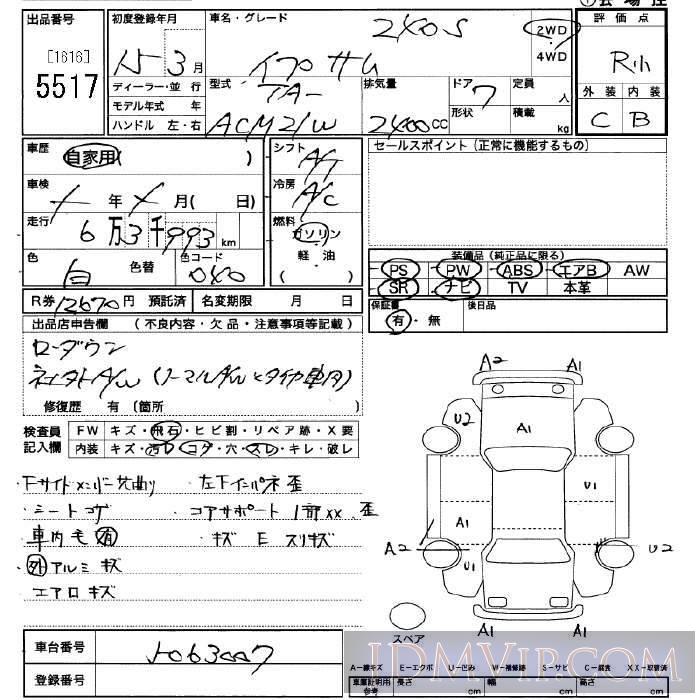 出品番号
[1616]
5517
初度登録年月
15 3月
ディーラー・並 行
モデル年式 年
ハンドル 左・右
車名・グレード
240S
イプサム
2WD
4WD
型式
TA-
ACM21W
排気量
2400CC
ドア
7
形状
定員
人
積載
kg
評価点
R小
外装 内装
C B
車歴
自家用( )
車検
年 月( 日)
走行
6万3千993km
色
白
色替
色コード
040
シフト
A/T
冷房
A/C
燃料
ガソリン
軽 油
( )
セールスポイント(正常に機能するもの)
装備品(純正品に限る)
PS PW ABS エアB AW
SR ナビ TV 本革
保証書
有・無
後日品
R券12670円 預託済 名変期限 月 日
出品店申告欄 (不良内容・欠品・注意事項等記載)
ローダウン
社外A/W (ノーマルA/W
修復歴 有 (箇所 )
検査員
記入欄
FW キズ・飛石・ヒビ割・リペア跡・X要
内装 キズ・汚レ・コゲ・穴・スレ・キレ・破レ
・Fサイドメンバー先曲り ・左下インパネ歪
・シートコゲ ・コアサポート1部xx、歪
・車内毛有 ・キズ E スリキズ
・外アルミキズ
エアロキズ
A2 A1
U2 A1
U1
A1
A2 U2
U1
A1 A1
スペア
車台番号
登録番号
A-線キズ E-エクボ U-凹み W-補修跡 S-サビ C-腐食 XX-取替済
車庫証明用
参考
長さ cm 幅 cm 高さ cm
JDMVIP.COM